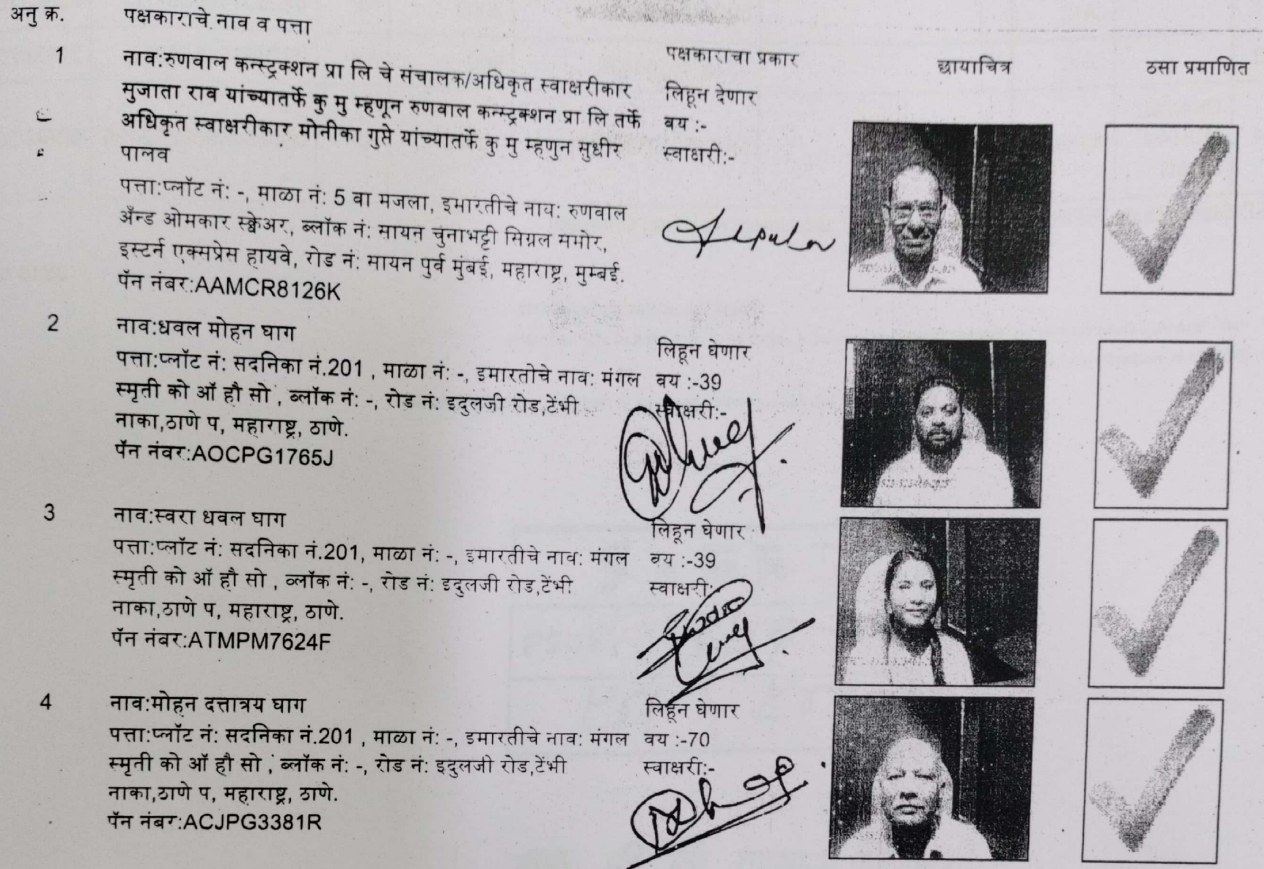 अनु क्र. पक्षकाराचे नाव व पत्ता पक्षकाराचा प्रकार छायाचित्र ठसा प्रमाणित
1 नाव:रुणवाल कन्स्ट्रक्शन प्रा लि चे संचालक/अधिकृत स्वाक्षरीकार लिहून देणार
मुजाता राव यांच्यातर्फे कु मु म्हणून रुणवाल कन्स्ट्रक्शन प्रा लि तर्फे वय :-
अधिकृत स्वाक्षरीकार मोनीका गुप्ते यांच्यातर्फे कु मु म्हणुन सुधीर स्वाक्षरी:-
पालव
पत्ता:प्लॉट नं: -, माळा नं: 5 वा मजला, इमारतीचे नाव: रुणवाल
अँन्ड ओमकार स्क्वेअर, ब्लॉक नं: सायन चुनाभट्टी सिग्नल समोर,
इस्टर्न एक्सप्रेस हायवे, रोड नं: सायन पुर्व मुंबई, महाराष्ट्र, मुम्बई.
पॅन नंबर:AAMCR8126K
2 नाव:धवल मोहन घाग लिहून घेणार
पत्ता:प्लॉट नं: सदनिका नं.201 , माळा नं: -, इमारतीचे नाव: मंगल वय :-39
स्मृती को ऑ हौ सो , ब्लॉक नं: -, रोड नं: इदुलजी रोड,टेंभी स्वाक्षरी:-
नाका,ठाणे प, महाराष्ट्र, ठाणे.
पॅन नंबर:AOCPG1765J
3 नाव:स्वरा धवल घाग लिहून घेणार
पत्ता:प्लॉट नं: सदनिका नं.201, माळा नं: -, इमारतीचे नाव: मंगल वय :-39
स्मृती को ऑ हौ सो , ब्लॉक नं: -, रोड नं: इदुलजी रोड,टेंभी स्वाक्षरी:-
नाका,ठाणे प, महाराष्ट्र, ठाणे.
पॅन नंबर:ATMPM7624F
4 नाव:मोहन दत्तात्रय घाग लिहून घेणार
पत्ता:प्लॉट नं: सदनिका नं.201 , माळा नं: -, इमारतीचे नाव: मंगल वय :-70
स्मृती को ऑ हौ सो , ब्लॉक नं: -, रोड नं: इदुलजी रोड,टेंभी स्वाक्षरी:-
नाका,ठाणे प, महाराष्ट्र, ठाणे.
पॅन नंबर:ACJPG3381R